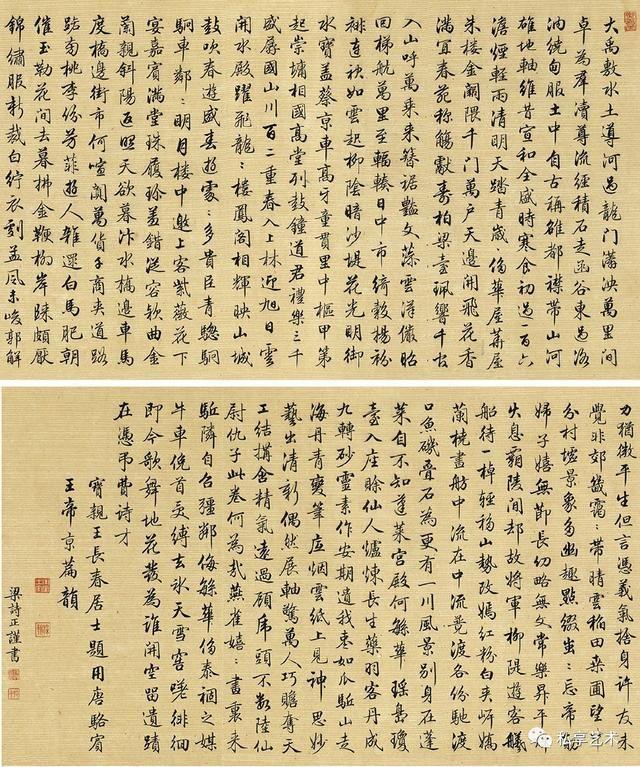 大禹敷水土導河過龍門瀰泱萬里間
卓為羣瀆尊流經積石走函谷東過洛
油繞甸服土中自古稱雄都襟帶山河
雄地軸維昔宣和全盛時寒食初過一百六
澹煙輕雨清明天踏青歲〻侈華屋華屋
朱樓金闕隈千門萬戶天邊開飛花香
滿宜春苑稱觴獻壽柏梁臺珮響千官
入山呼萬乘來簪裾豔文藻雲漢儷昭
回梯航萬里至輻輳日中市綺縠揚紛
緋連袂如雲起柳陰暗沙堤花光明御
水寶蓋蔡京車高牙童貫里中樞甲第
起崇墉相國高堂列鼓鐘道君禮樂三千
盛國山川百二重春入上林近旭日雲
開水殿躍飛龍〻樓鳳閣相輝映山城
鼓吹春遊盛春遊處〻多貴臣青驄駉
駉車鄰〻明月樓中邀上客紫薇花下
宴嘉賓滿堂珠履琮蓋錯從容歌曲金
蘭親斜陽返照天欲暮汴水橋邊車馬
度橋邊街市何喧闐萬貨千商夾道路
踏菊桃李份芳菲遊人雜遝白馬肥朝
催玉勒花間去暮拂金鞭柳岸陳頗厭
錦繡服新裁白紵衣劇孟風末峻郭解
力猶微平生但言憑義氣捨身許友未
覺非郊畿靄〻帶晴雲稻田桑圃望
分村墟景象多幽趣點綴〻忘帝
婦子嬉無節長幼略無文常樂昇平
久息霸陵間却故將軍柳隄遊客艤
船待一棹輕移山勢改嫣紅粉白夾岸嬌
蘭橈畫舫中流在中流競渡各份馳渡
口魚磯疊石為更有一川風景別身在蓬
萊自不知蓬萊宮殿何鮮華瑤島瓊
臺入座賒仙人爐煉長生藥羽客丹成
九轉砂靈素作安期遺我棗如瓜駈山走
海丹青變筆底烟雲紙上見神思妙
藝出清新偶然展軸驚萬人巧贍奪天
工結構含精氣遠過顧虎頭不數陸仙
尉仇子此卷何為哉燕雀嬉〻畫裏來
駈隣自召疆鄰侮鮮華侈泰禍之媒
牛車俛首受縛去氷天雪窖嗟徘徊
即今歌舞地花發為誰開空留遺蹟
在憑弔費詩才
寶親王長春居士題用唐駱賓
王帝京篇韻
梁詩正謹書
私享艺术